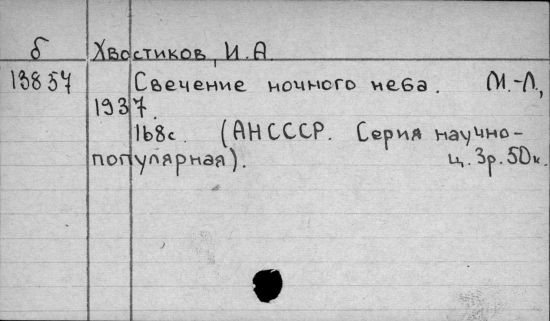 б Хвостиков, И.А.
13857 Свечение ночного неба. М.-Л.,
1937.
168с. (АНСССР. Серия научно-
популярная). ц. 3р. 50к.